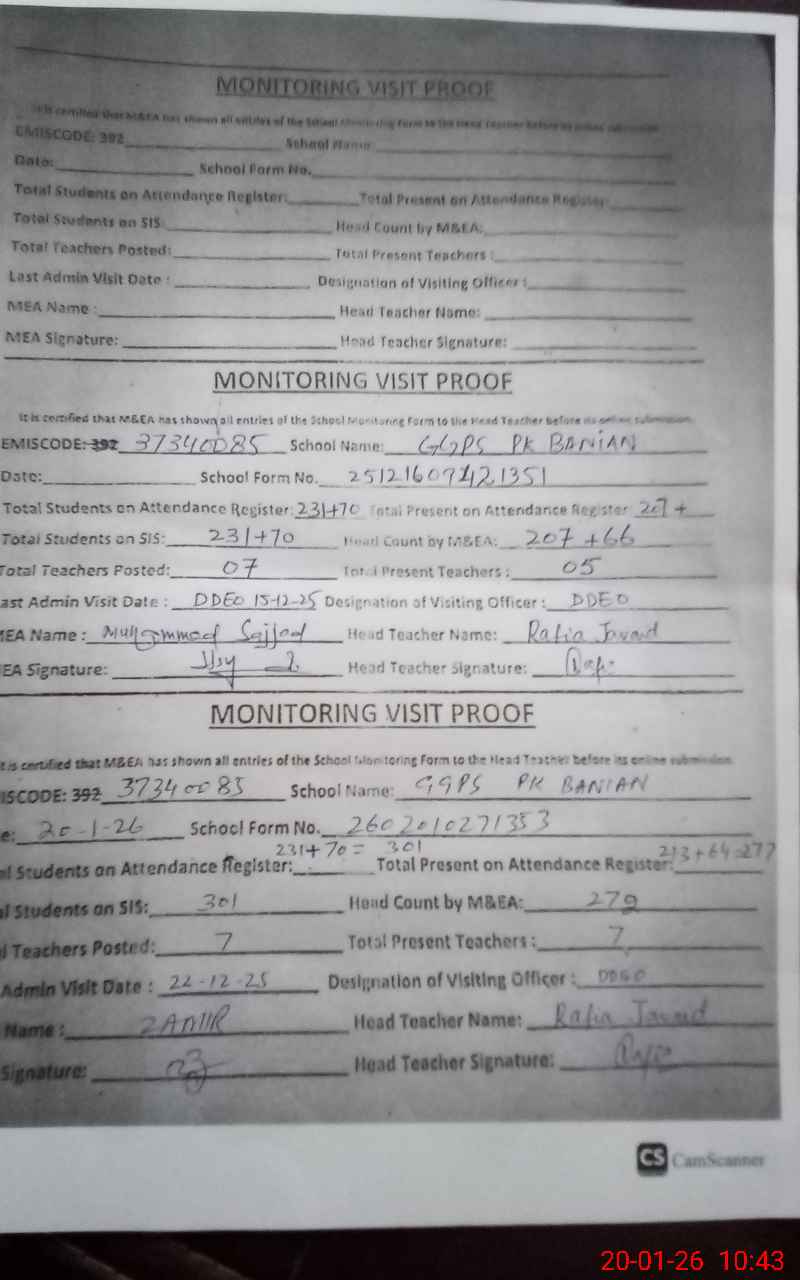 MONITORING VISIT PROOF
It is certified that M&EA has shown all entries of the School Monitoring Form to the Head Teacher before its online submission
EMISCODE: 392____ School Name:____
Date:____ School Form No.____
Total Students on Attendance Register:____ Total Present on Attendance Register:____
Total Students on SIS:____ Head Count by M&EA:____
Total Teachers Posted:____ Total Present Teachers :____
Last Admin Visit Date :____ Designation of Visiting Officer :____
MEA Name :____ Head Teacher Name:____
MEA Signature:____ Head Teacher Signature:____
MONITORING VISIT PROOF
It is certified that M&EA has shown all entries of the School Monitoring Form to the Head Teacher before its online submission
EMISCODE: 392 37340085 School Name: GGPS PK BANIAN
Date:____ School Form No.
Total Students on Attendance Register: 231+70 Total Present on Attendance Register 207 +
Total Students on SIS: 231+70 Head Count by M&EA: 207 +66
Total Teachers Posted: 07 Total Present Teachers : 05
ast Admin Visit Date : DDEO 15-12-25 Designation of Visiting Officer : DDEO
MEA Name : Muhammad Sajjad Head Teacher Name: Rafia Javaid
EA Signature: Head Teacher Signature:
MONITORING VISIT PROOF
t is certified that M&EA has shown all entries of the School Monitoring Form to the Head Teacher before its online submission
ISCODE: 392 37340085 School Name: GGPS PK BANIAN
e: 20-1-26 School Form No. 2602010271353
al Students on Attendance Register: 231+70= 301 Total Present on Attendance Register: 213+64=277
al Students on SIS: 301 Head Count by M&EA:
l Teachers Posted: 7 Total Present Teachers : 7
Admin Visit Date : 22-12-25 Designation of Visiting Officer : DDEO
Name : ZAMIR Head Teacher Name: Rafia Javaid
Signature: Head Teacher Signature:
CS CamScanner
20-01-26 10:43